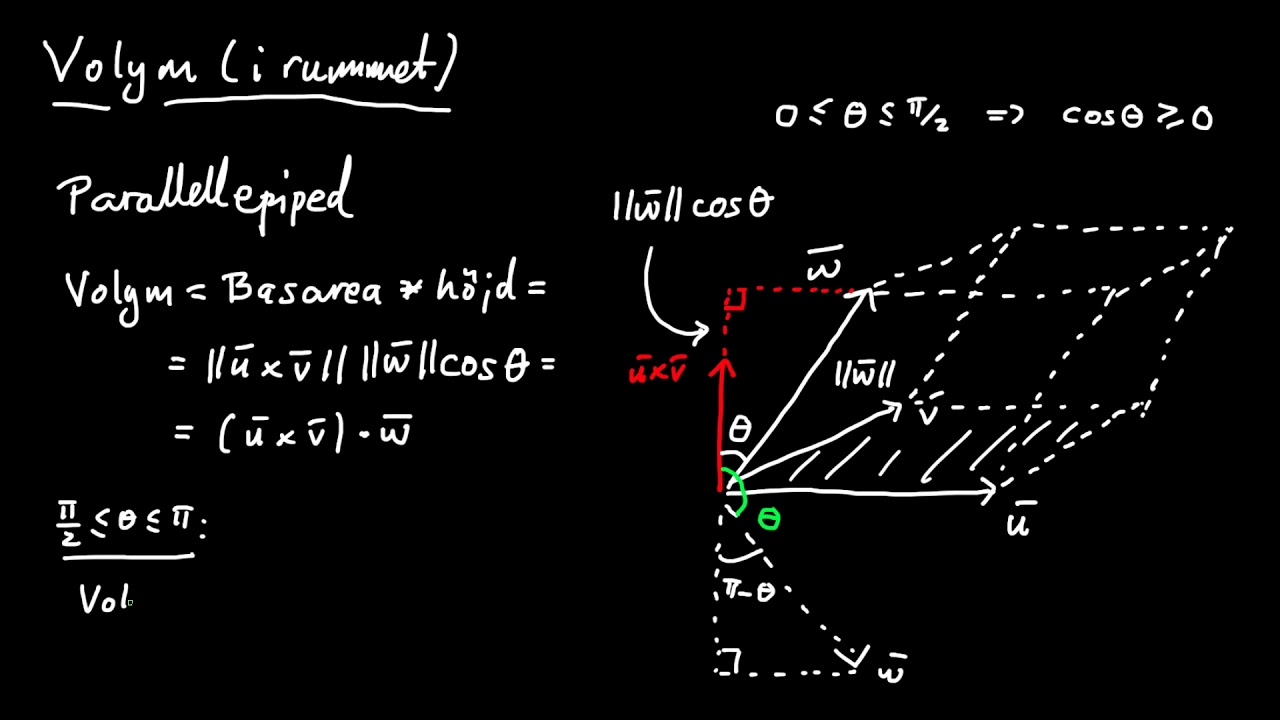 Volym (i rummet)
0 ≤ θ ≤ π/2 => cosθ ≥ 0
Parallellepiped
Volym = Basarea * höjd =
= ||ū × v̄|| ||w̄|| cosθ =
= (ū × v̄) · w̄
π/2 ≤ θ ≤ π:
Vol
||w̄|| cosθ
w̄
ū×v̄
||w̄||
θ
v̄
θ
ū
π-θ
w̄